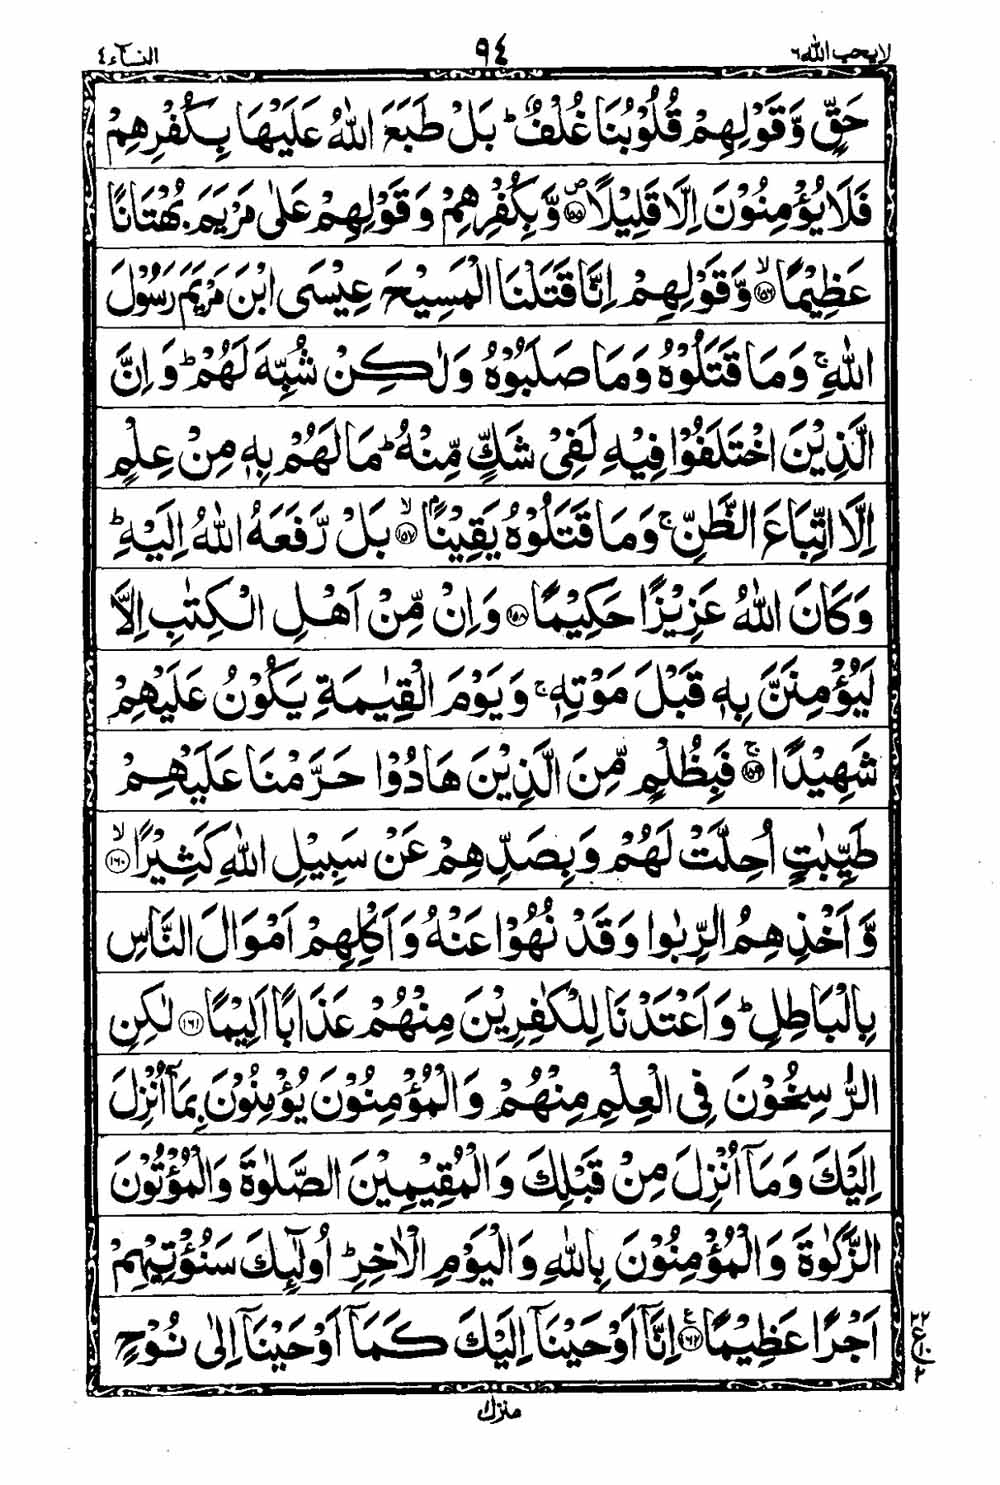 لا يحب الله ٦ ٩٤ النسآء ٤
حَقٍّ وَّقَوْلِهِمْ قُلُوْبُنَا غُلْفٌ ؕ بَلْ طَبَعَ اللّٰهُ عَلَيْهَا بِكُفْرِهِمْ
فَلَا يُؤْمِنُوْنَ اِلَّا قَلِيْلًا ۪﴿۱۵۵﴾ وَّبِكُفْرِهِمْ وَقَوْلِهِمْ عَلٰى مَرْيَمَ بُهْتَانًا
عَظِيْمًا ۙ﴿۱۵۶﴾ وَّقَوْلِهِمْ اِنَّا قَتَلْنَا الْمَسِيْحَ عِيْسَى ابْنَ مَرْيَمَ رَسُوْلَ
اللّٰهِ ۚ وَمَا قَتَلُوْهُ وَمَا صَلَبُوْهُ وَلٰكِنْ شُبِّهَ لَهُمْ ؕ وَاِنَّ
الَّذِيْنَ اخْتَلَفُوْا فِيْهِ لَفِيْ شَكٍّ مِّنْهُ ؕ مَا لَهُمْ بِهٖ مِنْ عِلْمٍ
اِلَّا اتِّبَاعَ الظَّنِّ ۚ وَمَا قَتَلُوْهُ يَقِيْنًۢا ۙ﴿۱۵۷﴾ بَلْ رَّفَعَهُ اللّٰهُ اِلَيْهِ ؕ
وَكَانَ اللّٰهُ عَزِيْزًا حَكِيْمًا ﴿۱۵۸﴾ وَاِنْ مِّنْ اَهْلِ الْكِتٰبِ اِلَّا
لَيُؤْمِنَنَّ بِهٖ قَبْلَ مَوْتِهٖ ۚ وَيَوْمَ الْقِيٰمَةِ يَكُوْنُ عَلَيْهِمْ
شَهِيْدًا ۚ﴿۱۵۹﴾ فَبِظُلْمٍ مِّنَ الَّذِيْنَ هَادُوْا حَرَّمْنَا عَلَيْهِمْ
طَيِّبٰتٍ اُحِلَّتْ لَهُمْ وَبِصَدِّهِمْ عَنْ سَبِيْلِ اللّٰهِ كَثِيْرًا ۙ﴿۱۶۰﴾
وَّاَخْذِهِمُ الرِّبٰوا وَقَدْ نُهُوْا عَنْهُ وَاَكْلِهِمْ اَمْوَالَ النَّاسِ
بِالْبَاطِلِ ؕ وَاَعْتَدْنَا لِلْكٰفِرِيْنَ مِنْهُمْ عَذَابًا اَلِيْمًا ﴿۱۶۱﴾ لٰكِنِ
الرّٰسِخُوْنَ فِي الْعِلْمِ مِنْهُمْ وَالْمُؤْمِنُوْنَ يُؤْمِنُوْنَ بِمَآ اُنْزِلَ
اِلَيْكَ وَمَآ اُنْزِلَ مِنْ قَبْلِكَ وَالْمُقِيْمِيْنَ الصَّلٰوةَ وَالْمُؤْتُوْنَ
الزَّكٰوةَ وَالْمُؤْمِنُوْنَ بِاللّٰهِ وَالْيَوْمِ الْاٰخِرِ ؕ اُولٰٓئِكَ سَنُؤْتِيْهِمْ
اَجْرًا عَظِيْمًا ﴿۱۶۲﴾ اِنَّآ اَوْحَيْنَآ اِلَيْكَ كَمَآ اَوْحَيْنَآ اِلٰى نُوْحٍ
منزل ١